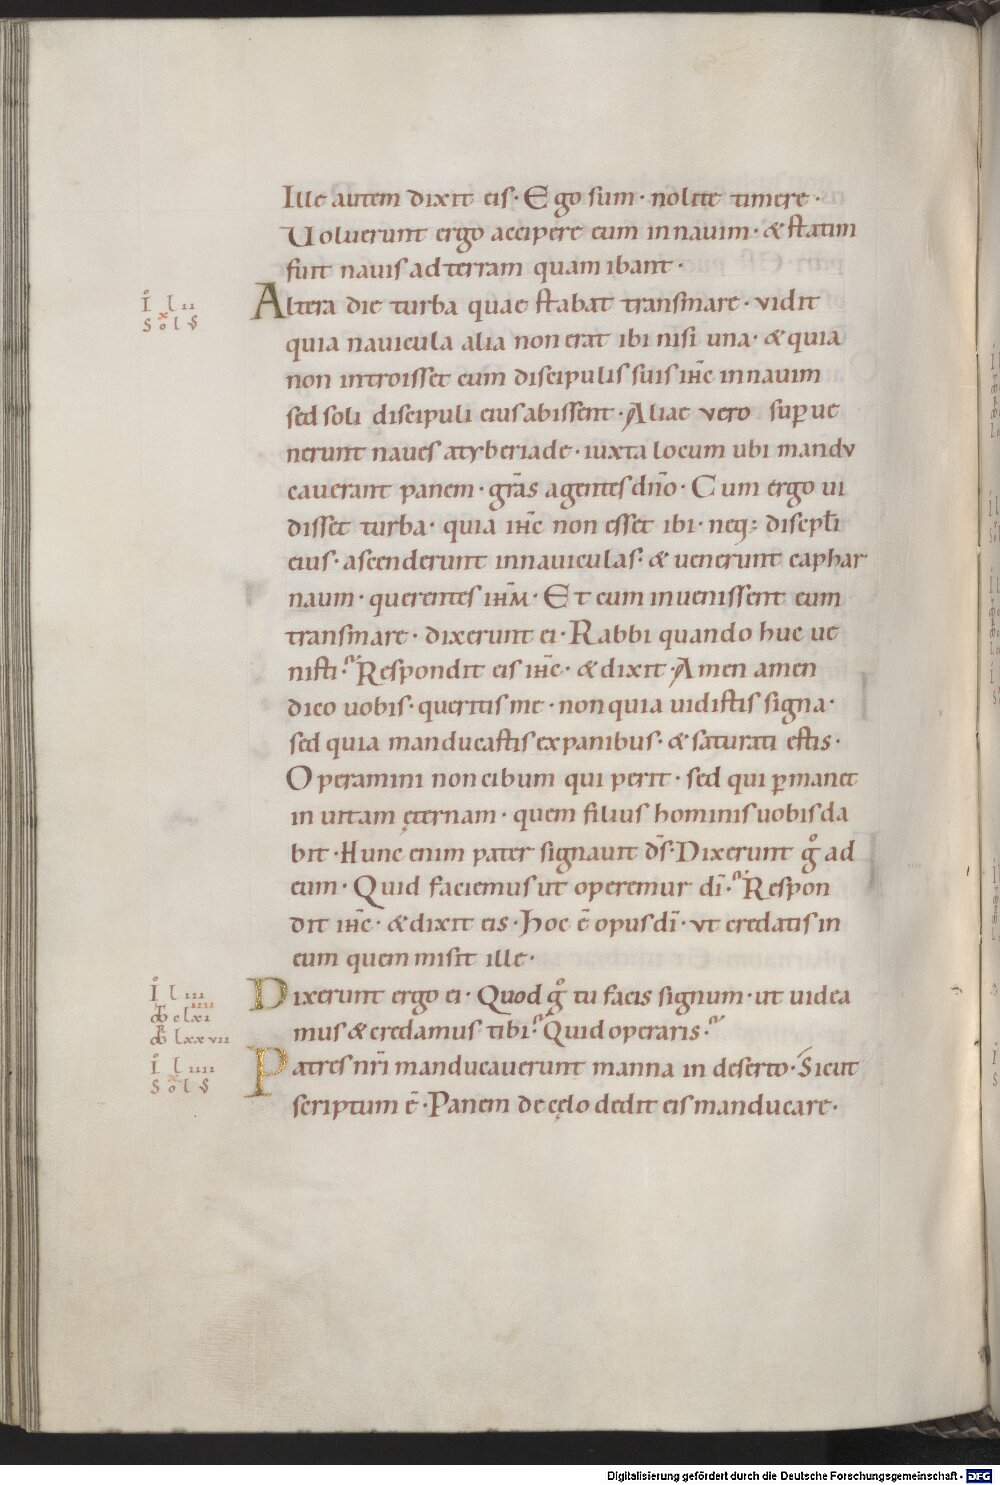 Ille autem dixit eis · Ego sum · nolite timere ·
Voluerunt ergo accipere eum innauim · & statim
fuit nauis adterram quam ibant ·
I lii
Altera die turba quae stabat transmare · vidit
SolS
quia nauicula alia non erat ibi nisi una · & quia
non introisset cum discipulis suis ihc̄ innauim
sed soli discipuli eius abissent · Aliae vero sup̄ue
nerunt naues atyberiade · iuxta locum ubi mandv
cauerant panem · grās agentes dn̄o · Cum ergo ui
disset turba · quia ihc̄ non esset ibi · neq; discipl̄i
eius · ascenderunt innauiculas · & uenerunt caphar
naum · querentes ihm̄ · Et cum inuenissent eum
transmare · dixerunt ei · Rabbi quando huc ue
nisti · Respondit eis ihc̄ · & dixit · Amen amen
dico uobis · queritis me · non quia uidistis signa ·
sed quia manducastis expanibus · & saturati estis ·
Operamini non cibum qui perit · sed qui p̄manet
in uitam ęternam · quem filius hominis uobis da
bit · Hunc enim pater signauit ds̄ · Dixerunt gͦ ad
eum · Quid faciemus ut operemur dī · Respon
dit ihc̄ · & dixit eis · hoc ē opus dī · vt credatis in
eum quem misit ille ·
I liii
Dixerunt ergo ei · Quod gͦ tu facis signum · ut uidea
clxi
mus & credamus tibi · Quid operaris ·
lxxvii
I liiii
Patres nr̄i manducauerunt manna in deserto · Sicut
SolS
scriptum ē · Panem de cęlo dedit eis manducare ·
Digitalisierung gefördert durch die Deutsche Forschungsgemeinschaft - DFG